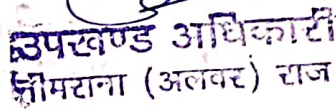 उपखण्ड अधिकारी
नीमराना (अलवर) राज